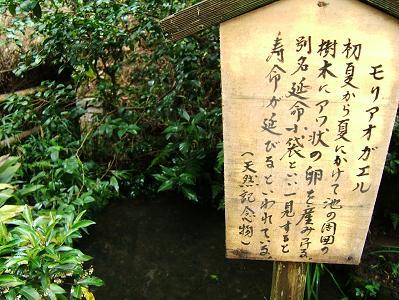 モリアオガエル
初夏から夏にかけて池の周囲の
樹木にアワ状の卵を産みます
別名延命小袋といい一見すると
寿命が延びるといわれている
(天然記念物)